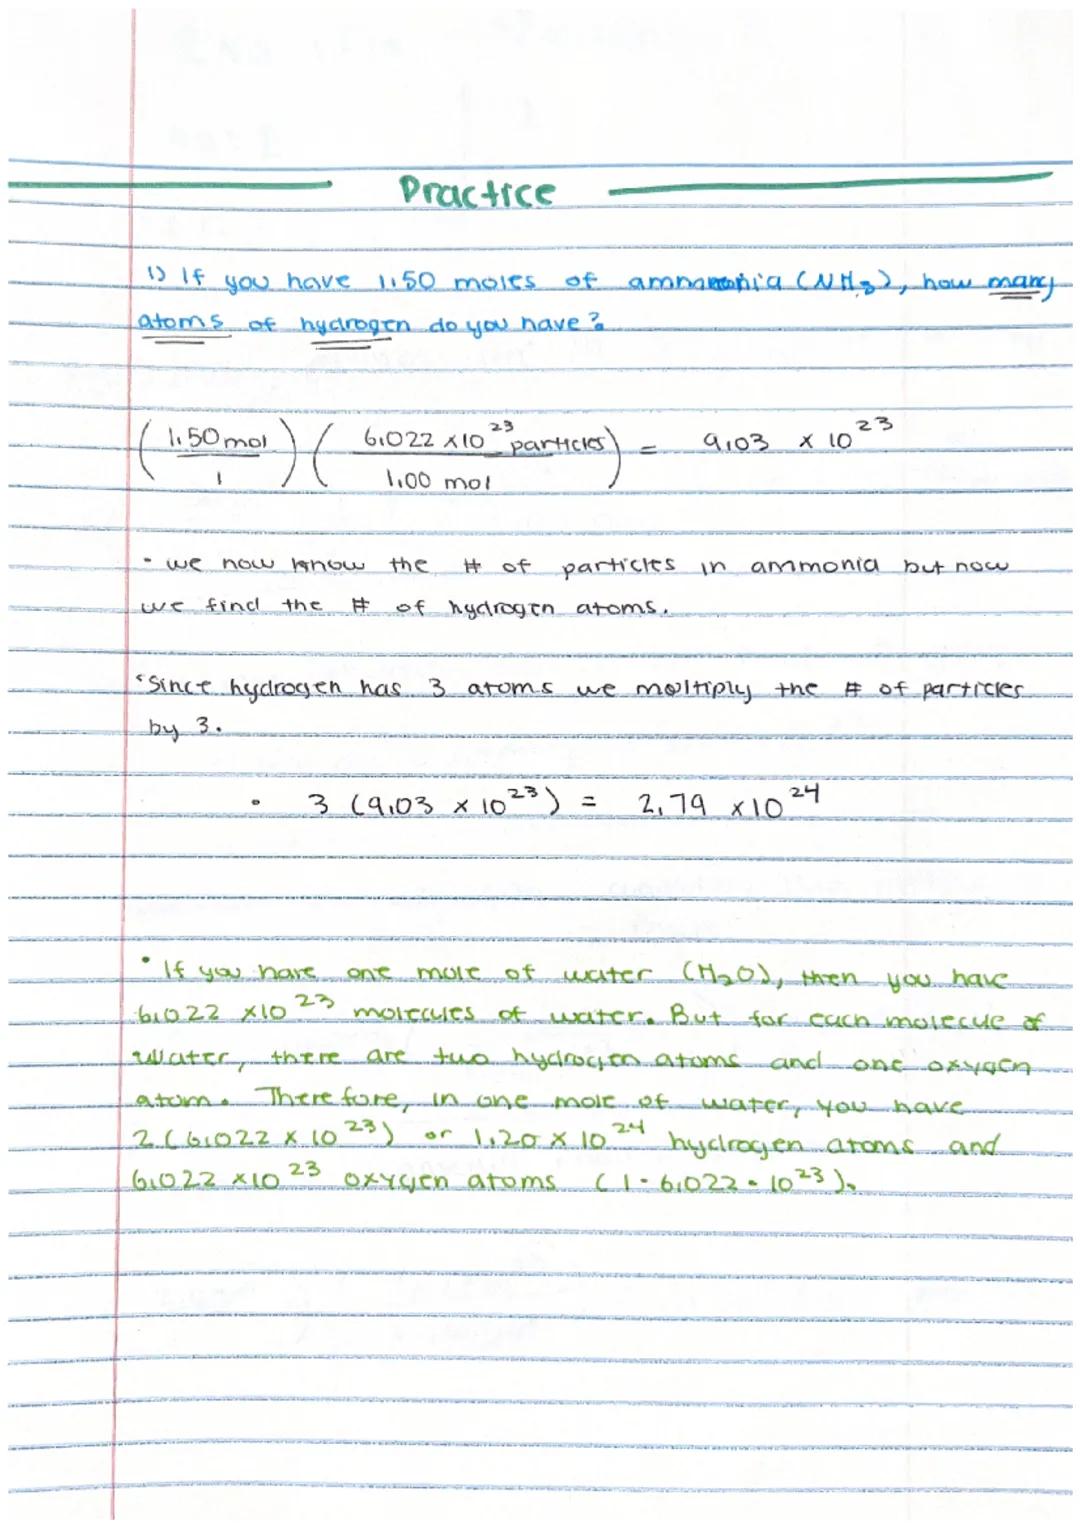 Practice
1) If you have 1.50 moles of ammonia (NH₃), how many
atoms of hydrogen do you have?
(1.50 mol / 1) (6.022 × 10²³ particles / 1.00 mol) = 9.03 × 10²³
• we now know the # of particles in ammonia but now
we find the # of hydrogen atoms.
• Since hydrogen has 3 atoms we moltiply the # of particles
by 3.
• 3 (9.03 × 10²³) = 2.79 × 10²⁴
• If you have one mole of water (H₂O), then you have
6.022 × 10²³ molecules of water. But for each molecule of
water, there are two hydrogen atoms and one oxygen
atom. Therefore, in one mole of water, you have
2 (6.022 × 10²³) or 1.20 × 10²⁴ hydrogen atoms and
6.022 × 10²³ oxygen atoms (1 · 6.022 · 10²³).